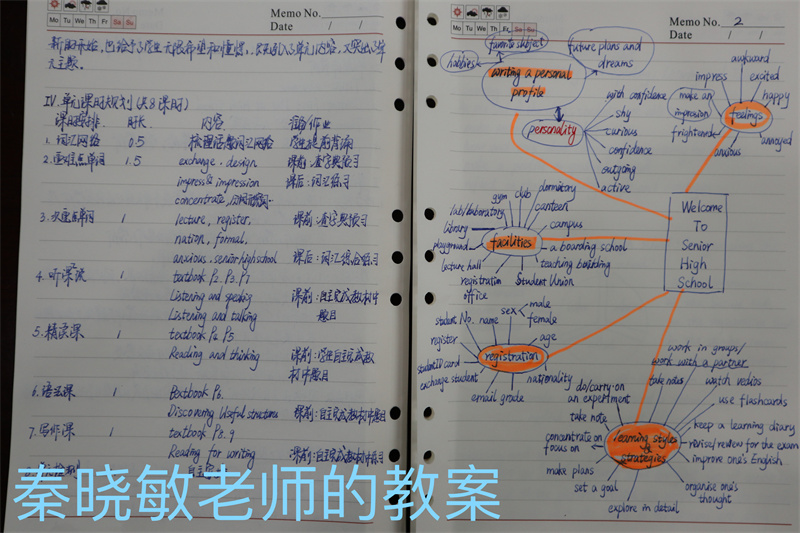 Memo No.
Mo Tu We Th Fr Sa Su
Date / /
IV.单元课时规划(共8课时)
课时安排 时长 内容 课前作业
1. 词汇网络 0.5 梳理话题词汇网络
2. 重点单词 1.5 exchange, design 课前:查字典练习
impress & impression 课后:词汇练习
concentrate
3. 次重点单词 1 lecture, register, 课前:查字典练习
nation, formal,
anxious, senior high school 课后:词汇综合练习
4. 听课流 1 textbook P2. P3. P7
Listening and speaking 课前:自主完成教材中
Listening and talking 题目
5. 精读课 1 textbook P4 P5
Reading and thinking 课前:学生自主完成教
材中题目
6. 语法课 1 textbook P6.
Discovering Useful structures 课前:自主完成教材中题目
7. 写作课 1 textbook P8.9
Reading for writing
Memo No. 2
Mo Tu We Th Fr Sa Su
Date / /
favorite subject
hobbies
future plans and
dreams
writing a personal
profile
personality
with confidence
shy
curious
confidence
outgoing
active
awkward
impress
excited
make an
impression
happy
feelings
frightened
anxious
annoyed
Welcome
To
Senior
High
School
gym
club
dormitory
canteen
lab/laboratory
library
campus
playground
facilities
a boarding school
lecture hall
teaching building
registration
office
Student Union
sex
male
female
student No.
name
age
register
registration
student ID card
exchange student
nationality
email
grade
work in groups/
work with a partner
do/carry on
an experiment
take notes
watch vedios
use flashcards
take note
keep a learning diary
concentrate on
focus on
learning styles
&
strategies
revise/review for the exam
improve one's English
make plans
set a goal
organise one's
thought
explore in detail
秦晓敏老师的教案